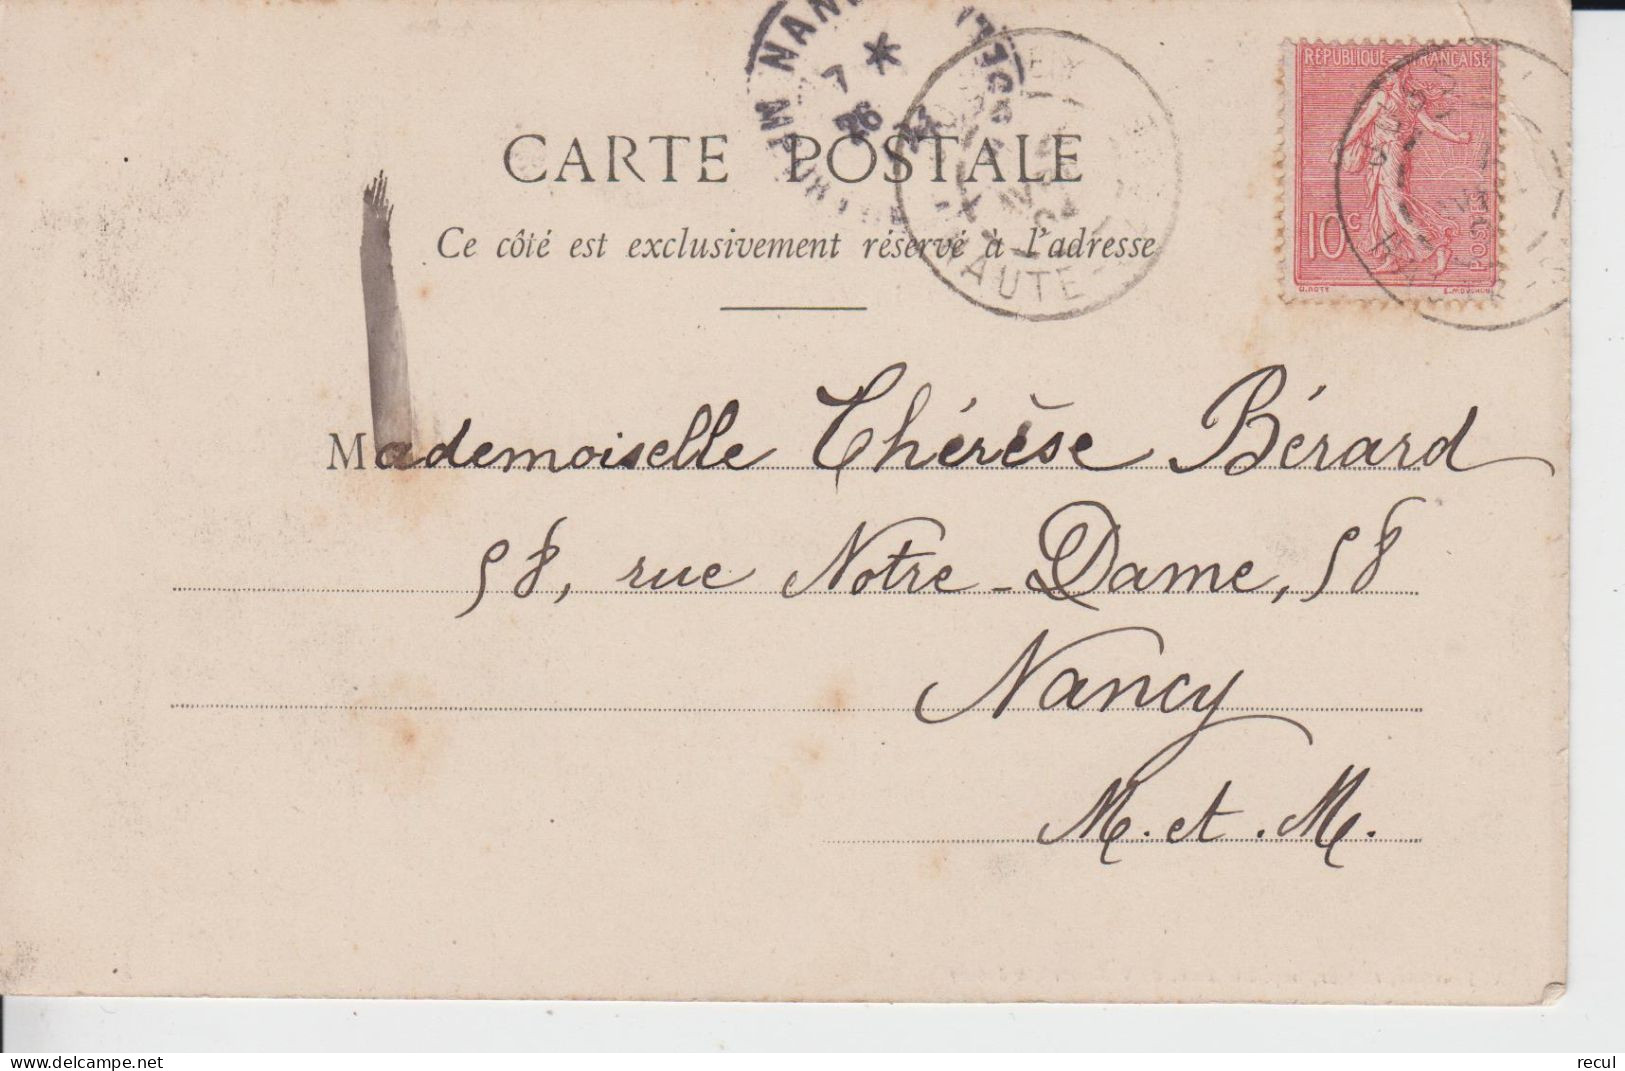 RÉPUBLIQUE FRANÇAISE
CARTE POSTALE
Ce côté est exclusivement réservé à l'adresse
HAUTE
10c
POSTES
O. ROTY
E. MOUCHON
Mademoiselle Thérèse Bérard
58, rue Notre-Dame, 58
Nancy
M. et. M.
recul